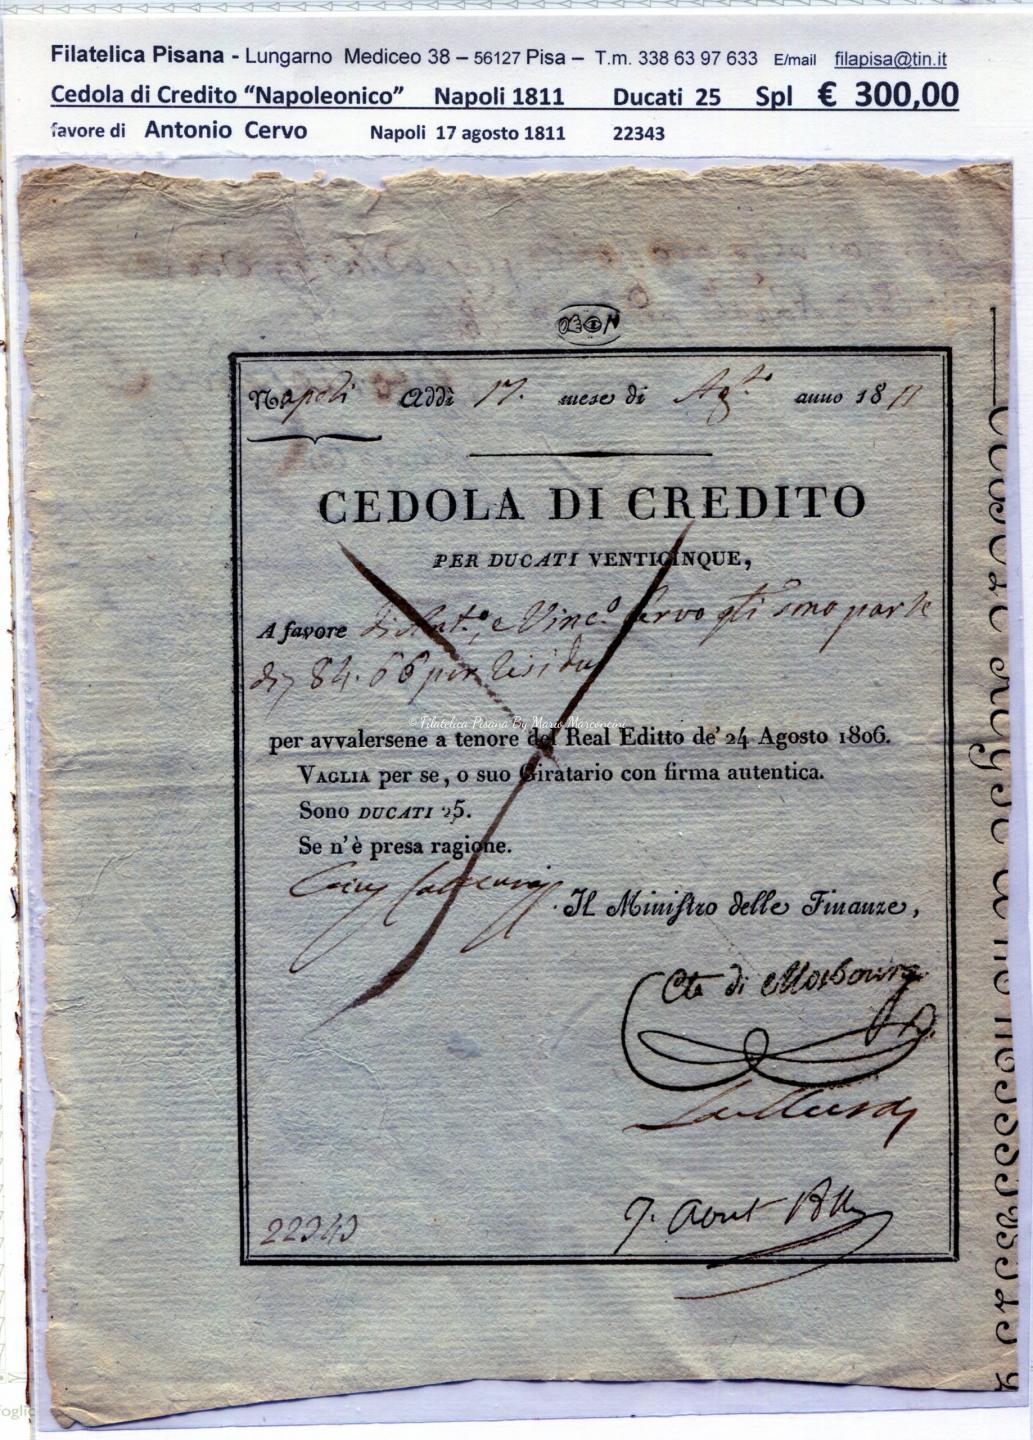 Filatelica Pisana - Lungarno Mediceo 38 – 56127 Pisa – T.m. 338 63 97 633 E/mail filapisa@tin.it
Cedola di Credito “Napoleonico” Napoli 1811 Ducati 25 Spl € 300,00
favore di Antonio Cervo Napoli 17 agosto 1811 22343
Napoli Addì 17. mese di Ag.to anno 1811
CEDOLA DI CREDITO
PER DUCATI VENTICINQUE,
A favore di Ant.o, e Vinc.o Cervo gli sono parte
di 84.66 per residuo
© Filatelica Pisana By Mario Marconcini
per avvalersene a tenore del Real Editto de' 24 Agosto 1806.
VAGLIA per se, o suo Giratario con firma autentica.
Sono DUCATI 25.
Se n'è presa ragione.
Il Ministro delle Finanze,
Cte di Mosbourg
22343